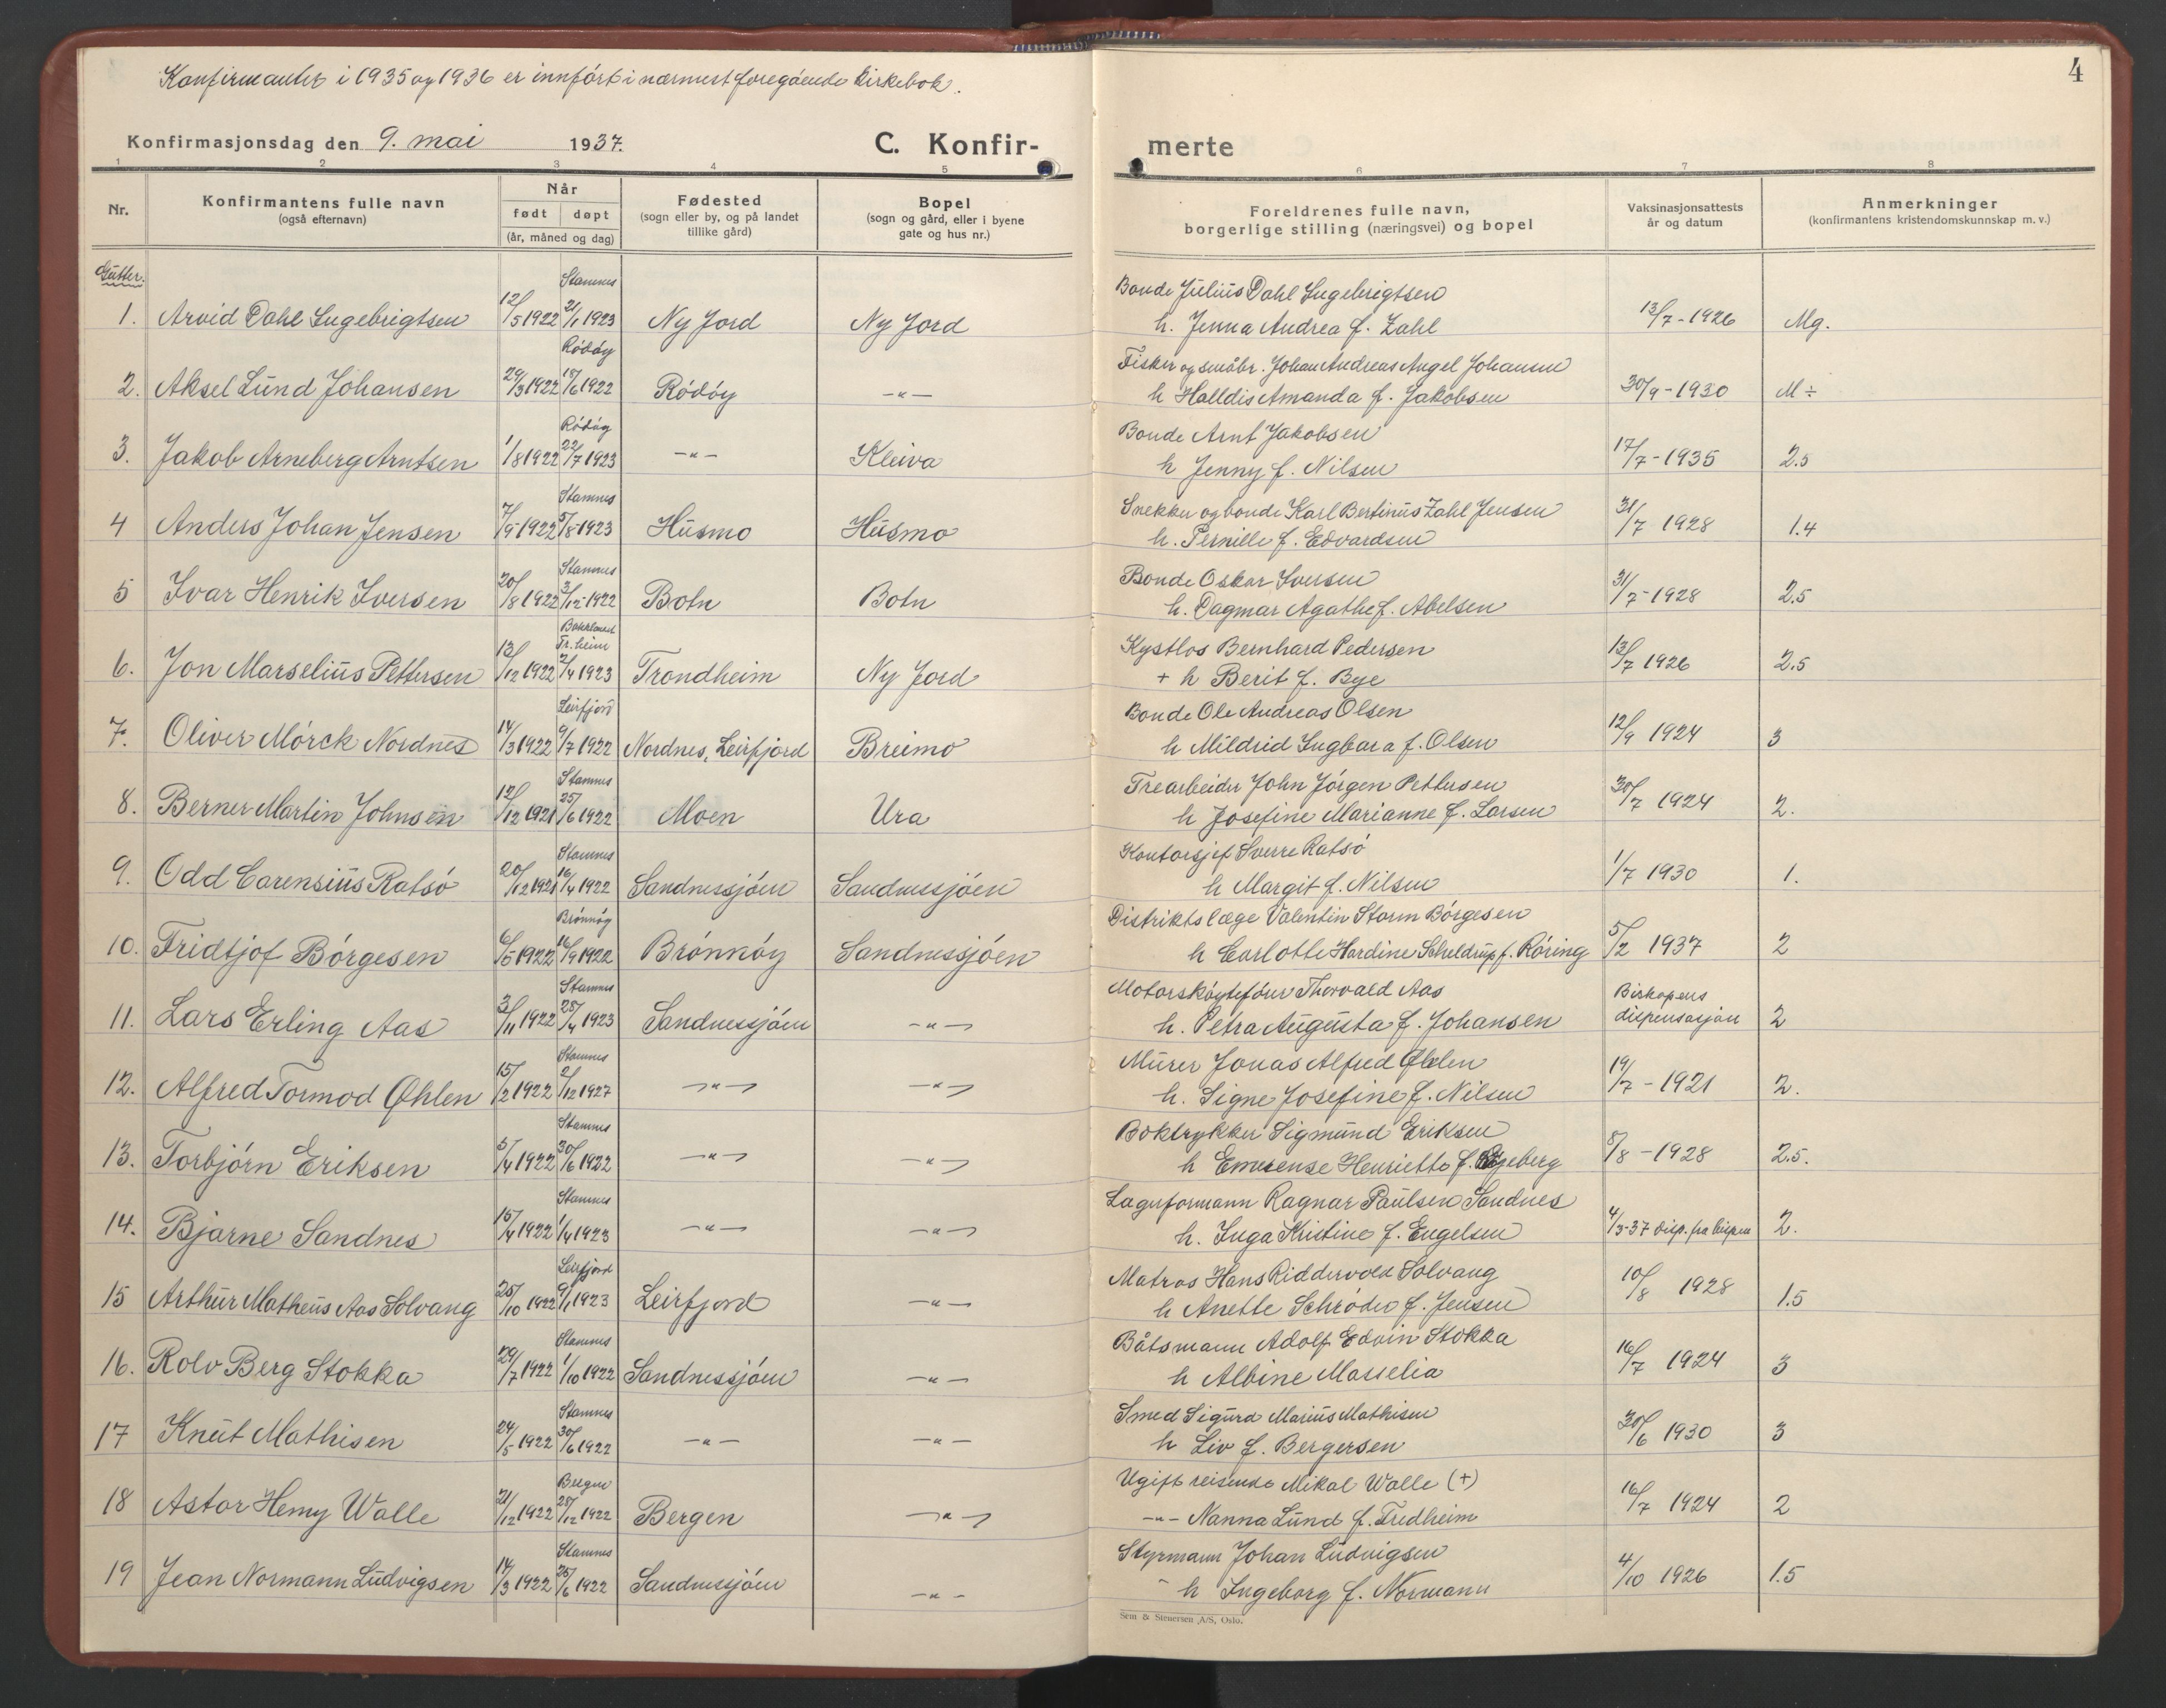 4
Konfirmanter i 1935 og 1936 er innført i nærmest foregående kirkebok.
Konfirmasjonsdag den 9. mai 1937.
C. Konfir-
merte
1 2 3 4 5 6 7 8
Nr.
Konfirmantens fulle navn
(også efternavn)
Når
født døpt
(år, måned og dag)
Fødested
(sogn eller by, og på landet
tillike gård)
Bopel
(sogn og gård, eller i byene
gate og hus nr.)
Foreldrenes fulle navn,
borgerlige stilling (næringsvei) og bopel
Vaksinasjonsattests
år og datum
Anmerkninger
(konfirmantens kristendomskunnskap m. v.)
Gutter.
Stamnes Bonde Julius Dahl Ingebrigtsen
1. Arvid Dahl Ingebrigtsen 12/5 1922 21/1 1923 Ny Jord Ny Jord h. Jenna Andrea f. Zahl 13/7-1926 Mg.
Rödöy Fisker og småbr. Johan Andreas Angel Johansen
2. Aksel Lund Johansen 29/3 1922 18/6 1922 Rödöy -"- h Halldis Amanda f. Jakobsen 30/9-1930 M÷
Rödöy Bonde Arnt Jakobsen
3. Jakob Arneberg Arntsen 1/8 1922 22/7 1923 -"- Kleiva h Jenny f. Nilsen 17/7-1935 2.5
Stamnes Snekker og bonde Karl Bertinus Zahl Jensen
4 Anders Johan Jensen 7/9-1922 5/8-1923 Husmo Husmo h. Pernille f. Edvardsen 31/7 1928 1.4
Stamnes Bonde Oskar Iversen
5 Ivar Henrik Iversen 20/8 1922 3/12-1922 Botn Botn h. Dagmar Agathe f. Abelsen 31/7-1928 2.5
Bakklandet
Tr.heim Kystlos Bernhard Pedersen
6. Jon Marselius Pettersen 13/12 1922 2/4 1923 Trondheim Ny Jord + h Berit f. Bye 13/7 1926 2.5
Leirfjord Bonde Ole Andreas Olsen
7. Oliver Mörck Nordnes 14/3 1922 9/7 1922 Nordnes, Leirfjord Breimo h Mildrid Ingbara f. Olsen 12/9 1924 3
Stamnes Trearbeider John Jörgen Pettersen
8. Berner Martin Johnsen 12/12 1921 25/6 1922 Moen Ura h Josefine Marianne f. Larsen 30/7 1924 2.
Stamnes Kontorsjef Sverre Ratsö
9. Odd Carensius Ratsö 20/12 1921 16/4 1922 Sandnessjöen Sandnessjöen h Margit f. Nilsen 1/7 1930 1.
Brönnöy Distriktslæge Valentin Storm Börgesen
10. Fridtjof Börgesen 6/5 1922 16/9 1922 Brönnöy Sandnessjöen h Carlotte Hardine Scheldrup f. Röring 5/2 1937 2
Stamnes Motorskøyteförer Thorvald Aas Biskopens
11. Lars Erling Aas 3/11 1922 28/4 1923 Sandnessjöen -"- h. Petra Augusta f. Johansen dispensasjon 2
Stamnes Murer Jonas Alfred Øhlen
12. Alfred Tormod Øhlen 15/2 1922 2/12 1927 -"- -"- h. Signe Josefine f. Nilsen 19/7-1921 2.
Stamnes Boktrykker Sigmund Eriksen
13. Torbjörn Eriksen 5/4 1922 30/6 1922 -"- -"- h Emerense Henriette f. geberg 8/8-1928 2.5.
Stamnes Lagerformann Ragnar Paulsen Sandnes
14. Bjarne Sandnes 15/4 1922 1/4 1923 -"- -"- h. Inga Kristine f. Engelsen 4/3-37 disp. fra bispen 2.
Leirfjord Matros Hans Riddervold Solvang
15 Arthur Matheus Aas Solvang 25/10 1922 9/1 1923 Leirfjord -"- h Anette Schröder f. Jensen 10/8 1928 1.5
Stamnes Båtsmann Adolf Edvin Stokka
16. Rolv Berg Stokka 29/7 1922 1/10 1922 Sandnessjöen -"- h Albine Masselia 16/7 1924 3
Stamnes Smed Sigurd Marius Mathisen
17 Knut Mathisen 24/5 1922 30/6 1922 -"- -"- h Liv f. Bergersen 30/6 1930 3
Bergen Ugift reisende Mikal Walle (+)
18 Astor Hemy Walle 21/12 1922 28/12 1922 Bergen -"- -"- Nanna Lund f. Fredheim 16/7 1924 2
Stamnes Styrmann Johan Ludvigsen
19 Jean Normann Ludvigsen 14/3 1922 25/6 1922 Sandnessjöen -"- h Ingeborg f. Normann 4/10 1926 1.5
Sem & Stenersen A/S, Oslo.